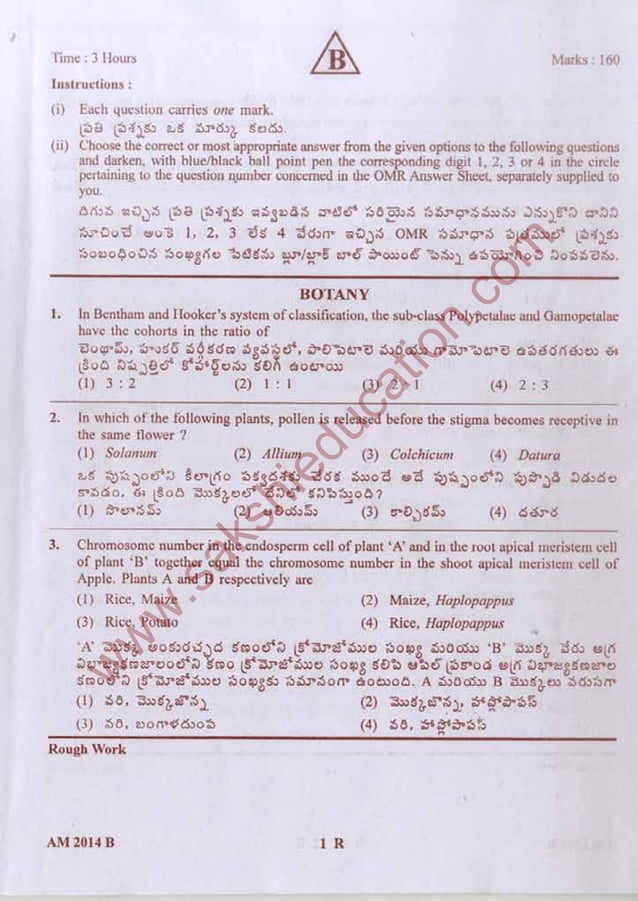 B
Time : 3 Hours
Marks : 160
Instructions :
(i) Each question carries one mark.
ప్రతి ప్రశ్నకు ఒక మార్కు కలదు.
(ii) Choose the correct or most appropriate answer from the given options to the following questions
and darken, with blue/black ball point pen the corresponding digit 1, 2, 3 or 4 in the circle
pertaining to the question number concerned in the OMR Answer Sheet, separately supplied to
you.
దిగువ ఇచ్చిన ప్రతి ప్రశ్నకు ఇవ్వబడిన వాటిలో సరియైన సమాధానమును ఎన్నుకొని దానిని
సూచించే అంకె 1, 2, 3 లేక 4 వేరుగా ఇచ్చిన OMR సమాధాన పత్రములో ప్రశ్నకు
సంబంధించిన సంఖ్యగల పేటికను బ్లూ/బ్లాక్ బాల్ పాయింట్ పెన్ను ఉపయోగించి నింపవలెను.
BOTANY
1. In Bentham and Hooker's system of classification, the sub-class Polypetalae and Gamopetalae
have the cohorts in the ratio of
బెంథామ్, హుకర్ వర్గీకరణ వ్యవస్థలో, పాలిపెటాలె మరియు గామోపెటాలె ఉపతరగతులు ఈ
క్రింది నిష్పత్తిలో కోహర్ట్‌లను కలిగి ఉంటాయి
(1) 3 : 2 (2) 1 : 1 (3) 2 : 1 (4) 2 : 3
2. In which of the following plants, pollen is released before the stigma becomes receptive in
the same flower ?
(1) Solanum (2) Allium (3) Colchicum (4) Datura
ఒక పుష్పంలోని కీలాగ్రం పక్వదశకు చేరక ముందే అదే పుష్పంలోని పుప్పొడి విడుదల
కావడం, ఈ క్రింది మొక్కలలో దేనిలో కనిపిస్తుంది?
(1) సొలానమ్ (2) ఆలియమ్ (3) కాల్చికమ్ (4) దతూర
3. Chromosome number in the endosperm cell of plant 'A' and in the root apical meristem cell
of plant 'B' together equal the chromosome number in the shoot apical meristem cell of
Apple. Plants A and B respectively are
(1) Rice, Maize (2) Maize, Haplopappus
(3) Rice, Potato (4) Rice, Haplopappus
'A' మొక్క అంకురచ్ఛద కణంలోని క్రోమోజోముల సంఖ్య మరియు 'B' మొక్క వేరు అగ్ర
విభాజ్యకణజాలంలోని కణం క్రోమోజోముల సంఖ్య కలిపి ఆపిల్ ప్రకాండ అగ్ర విభాజ్యకణజాల
కణంలోని క్రోమోజోముల సంఖ్యకు సమానంగా ఉంటుంది. A మరియు B మొక్కలు వరుసగా
(1) వరి, మొక్కజొన్న (2) మొక్కజొన్న, హాప్లోపాపస్
(3) వరి, బంగాళదుంప (4) వరి, హాప్లోపాపస్
Rough Work
AM 2014 B
1 R
www.sakshieducation.com